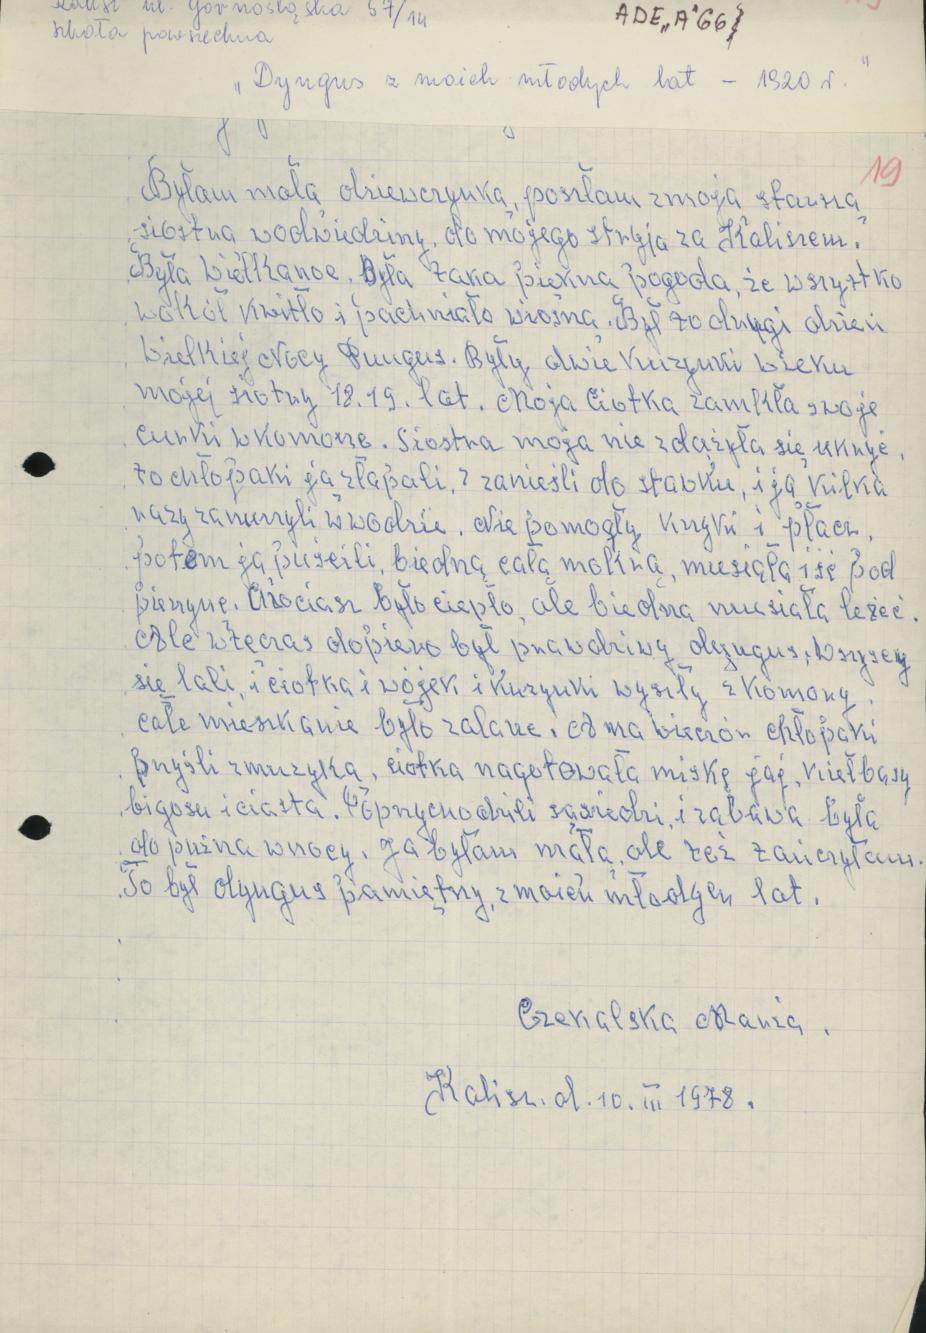 Kalisz ul. Górnośląska 67/14
szkoła powszechna
ADE „A" 66
„Dyngus z moich młodych lat – 1920 r."
19
Byłam małą dziewczynką, poszłam zmoją starszą
siostrą wodwiedziny, do mojego stryja za Kaliszem.
Była Wielkanoc. Była taka piękna pogoda, że wszystko
wokół kwitło i pachniało wiosną. Był to drugi dzień
Wielkiej Nocy Dungus. Były dwie kuzynki wieku
mojej siotry 18.19. lat. Moja Ciotka zamkła swoje
curki wkomorze. Siostra moja nie zdążyła się ukryć,
to chłopaki ją złapali, i zanieśli do stawku, i ją kilka
razy zanurzyli wwodzie. Nie pomogły krzyki i płacz,
potem ją puścili, biedną całą mokrą, musiała iść pod
pierzynę. Chociasz było ciepło, ale biedna musiała leżeć.
Ale wtęczas dopiero był prawdziwy dyngus, wszyscy
się lali, i ciotka i wójek i kuzynki wyszły z komory.
całe mieszkanie było zalane. A na wieczór chłopaki
przyśli zmuzyką, ciotka nagotowała miskę jaj, kiełbasy
bigosu iciasta. Poprzychodzili sąsiedzi, i zabawa była
do puźna wnocy. Ja byłam mała, ale też tańczyłam.
To był dyngus pamiętny, z moich młodych lat.
Czekalska Maria.
Kalisz. d. 10. III 1978.